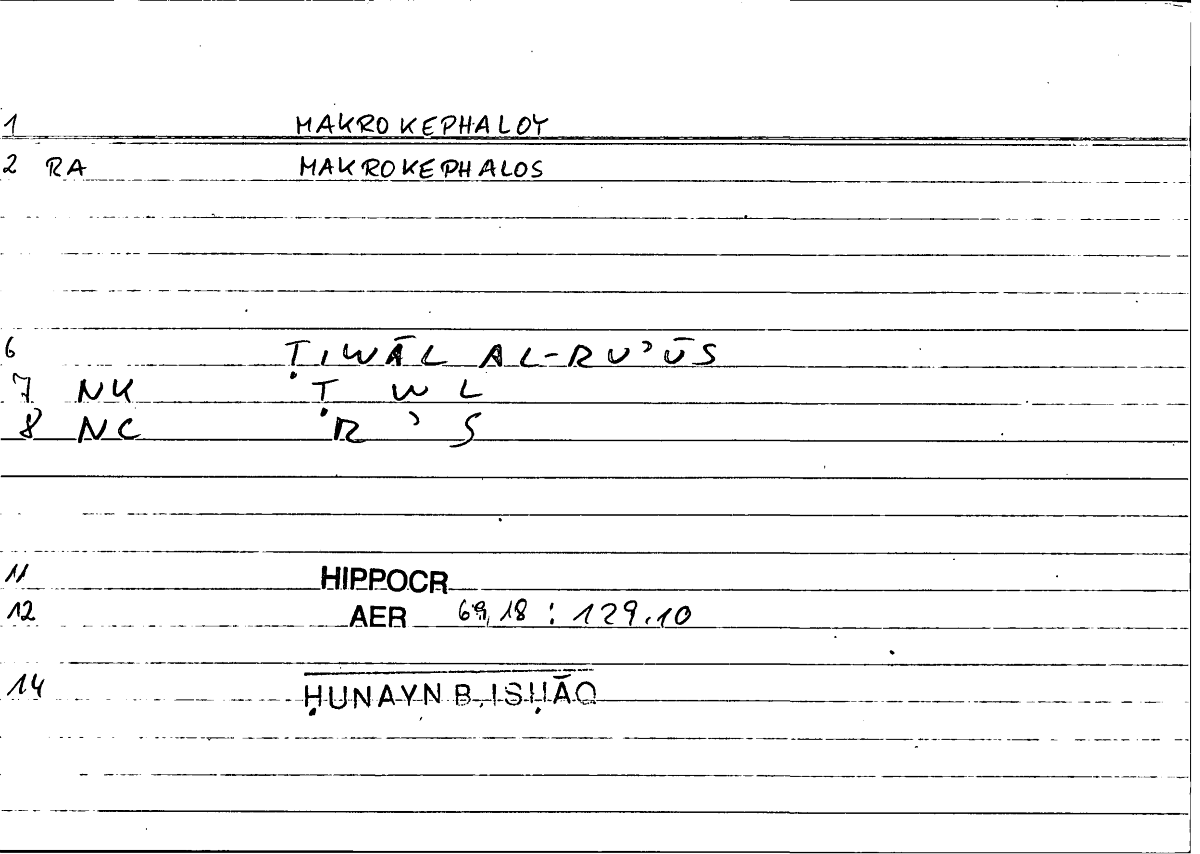 1 MAKROKEPHALOY
2 RA MAKROKEPHALOS
6 ṬIWĀL AL-RUʾŪS
7 NK Ṭ W L
8 NC R ʾ S
11 HIPPOCR
12 AER 69,18 : 129.10
14 ḤUNAYN B. ISḤĀQ